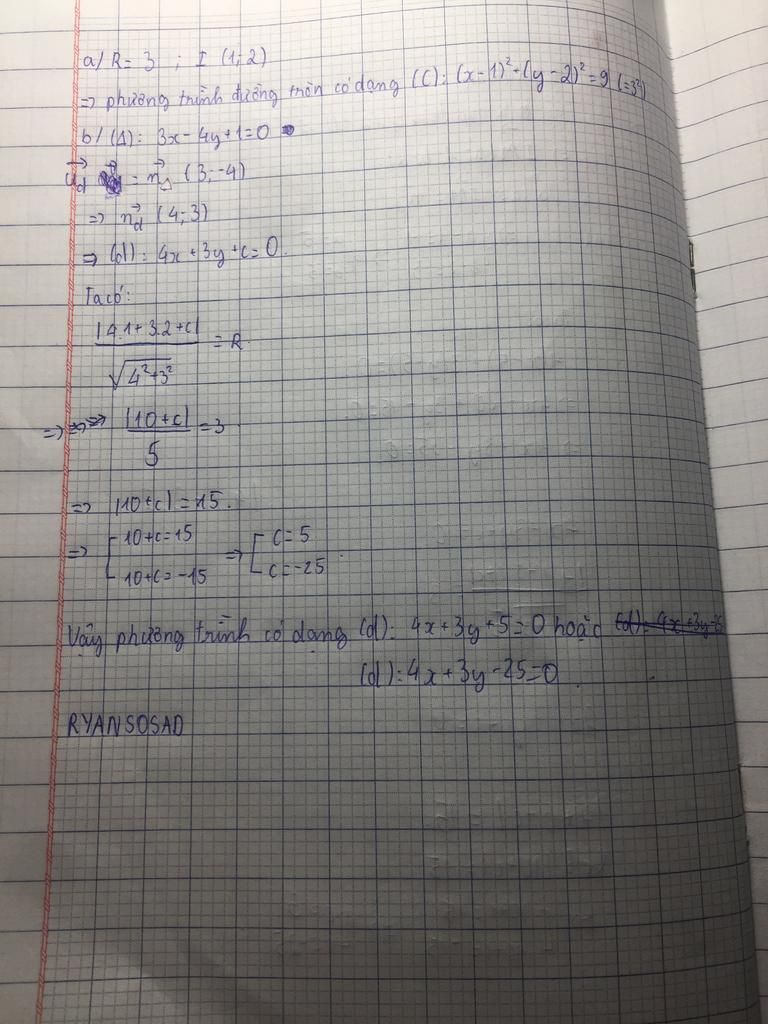 a/ R = 3 ; I (1; 2)
=> phương trình đường tròn có dạng (C): (x-1)² + (y-2)² = 9 (=3²)
b/ (Δ): 3x - 4y + 1 = 0
u⃗d = n⃗Δ (3; -4)
=> n⃗d (4; 3)
=> (d): 4x + 3y + c = 0.
Ta có:
|4.1 + 3.2 + c| / √(4² + 3²) = R
=> |10 + c| / 5 = 3
=> |10 + c| = 15.
=> [ 10 + c = 15 => [ c = 5
10 + c = -15 c = -25
Vậy phương trình có dạng (d): 4x + 3y + 5 = 0 hoặc
(d): 4x + 3y - 25 = 0
RYANSOSAD